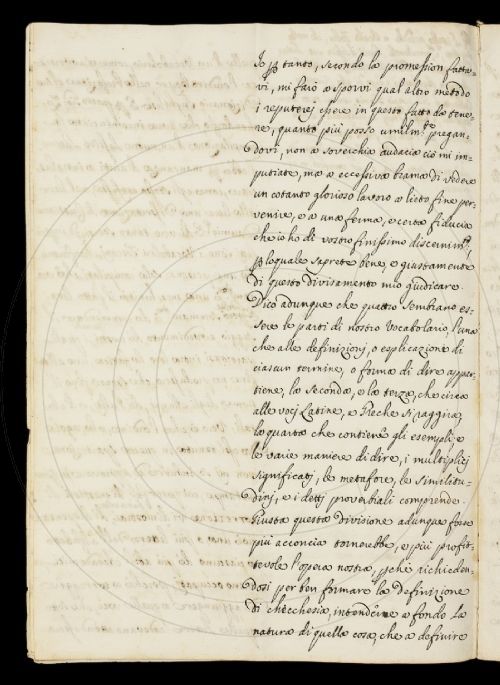 Io ꝑ tanto, secondo la promession fatta-
vi, mi farò a sporvi qual altro metodo
i reputerej essere in questo fatto da tene-
re, quanto più posso umilmte pregan-
dovi, non a soverchia audacia ciò mi im-
putiate, ma a eccessiva brama di vedere
un cotanto glorioso lavoro a lieto fine per-
venire, e a una ferma, e certa fiducia
che io ho di vostro finissimo discernimto,
ꝑ loquale saprete bene, e giustamente
di questo divisamento mio giudicare.
Dico adunque che quattro sembrano es-
sere le parti di nostro Vocabolario, l'una
che alle definizionj, o esplicazione di
ciascun termine, o forma di dire appar-
tiene, la seconda, e la terza, che circa
alle vocj Latine, e Greche si raggira,
la quarta che contiene gli esempli, e
le varie maniere di dire, i multiplicj
significatj, le metafore, le similitu-
dinj, e i dettj proverbiali comprende.
Giusta questa divisione adunque forse
più acconcia tornerebbe, e più profit-
tevole l'opera nostra, ꝑchè richieden-
dosi per ben formare la definizione
di checchesia, intendere a fondo la
natura di quella cosa, che a definire